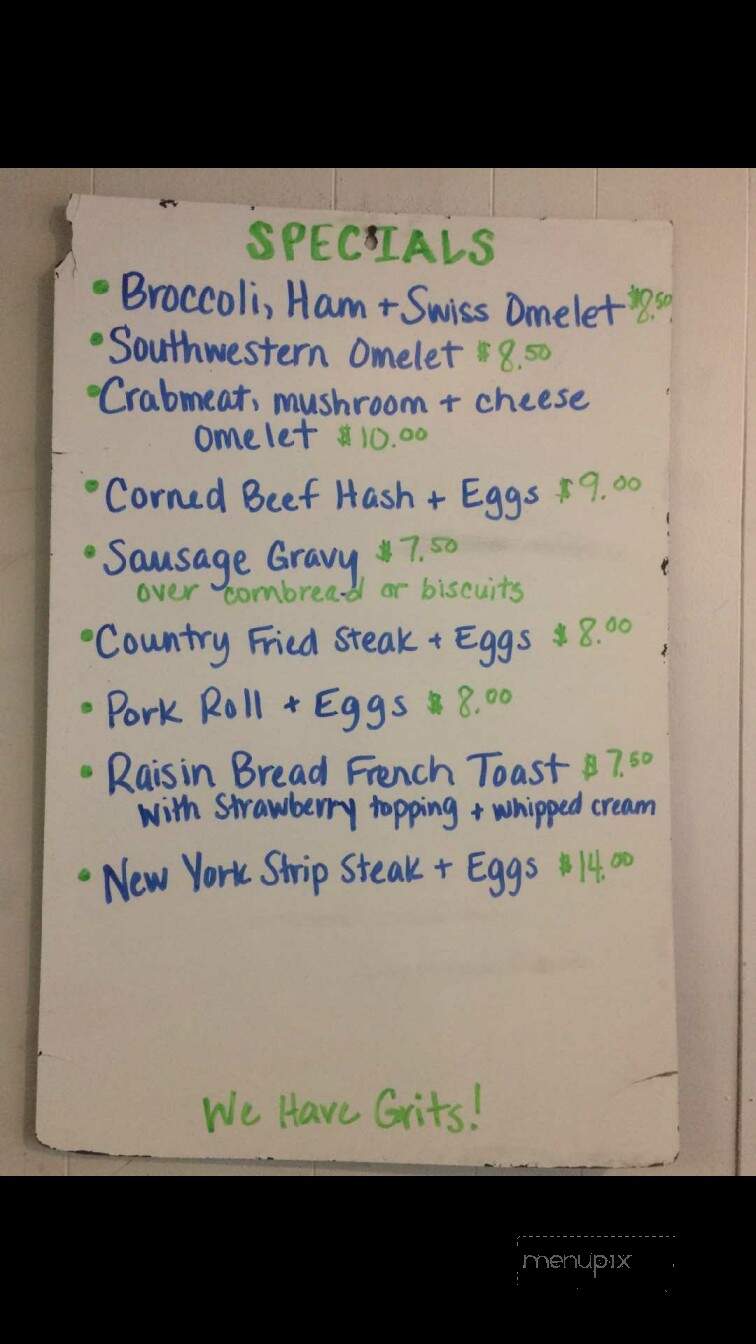 SPECIALS
• Broccoli, Ham + Swiss Omelet $8.50
• Southwestern Omelet $8.50
• Crabmeat, mushroom + cheese
omelet $10.00
• Corned Beef Hash + Eggs $9.00
• Sausage Gravy $7.50
over cornbread or biscuits
• Country Fried Steak + Eggs $8.00
• Pork Roll + Eggs $8.00
• Raisin Bread French Toast $7.50
with Strawberry topping + whipped cream
• New York Strip Steak + Eggs $14.00
We Have Grits!
menupix